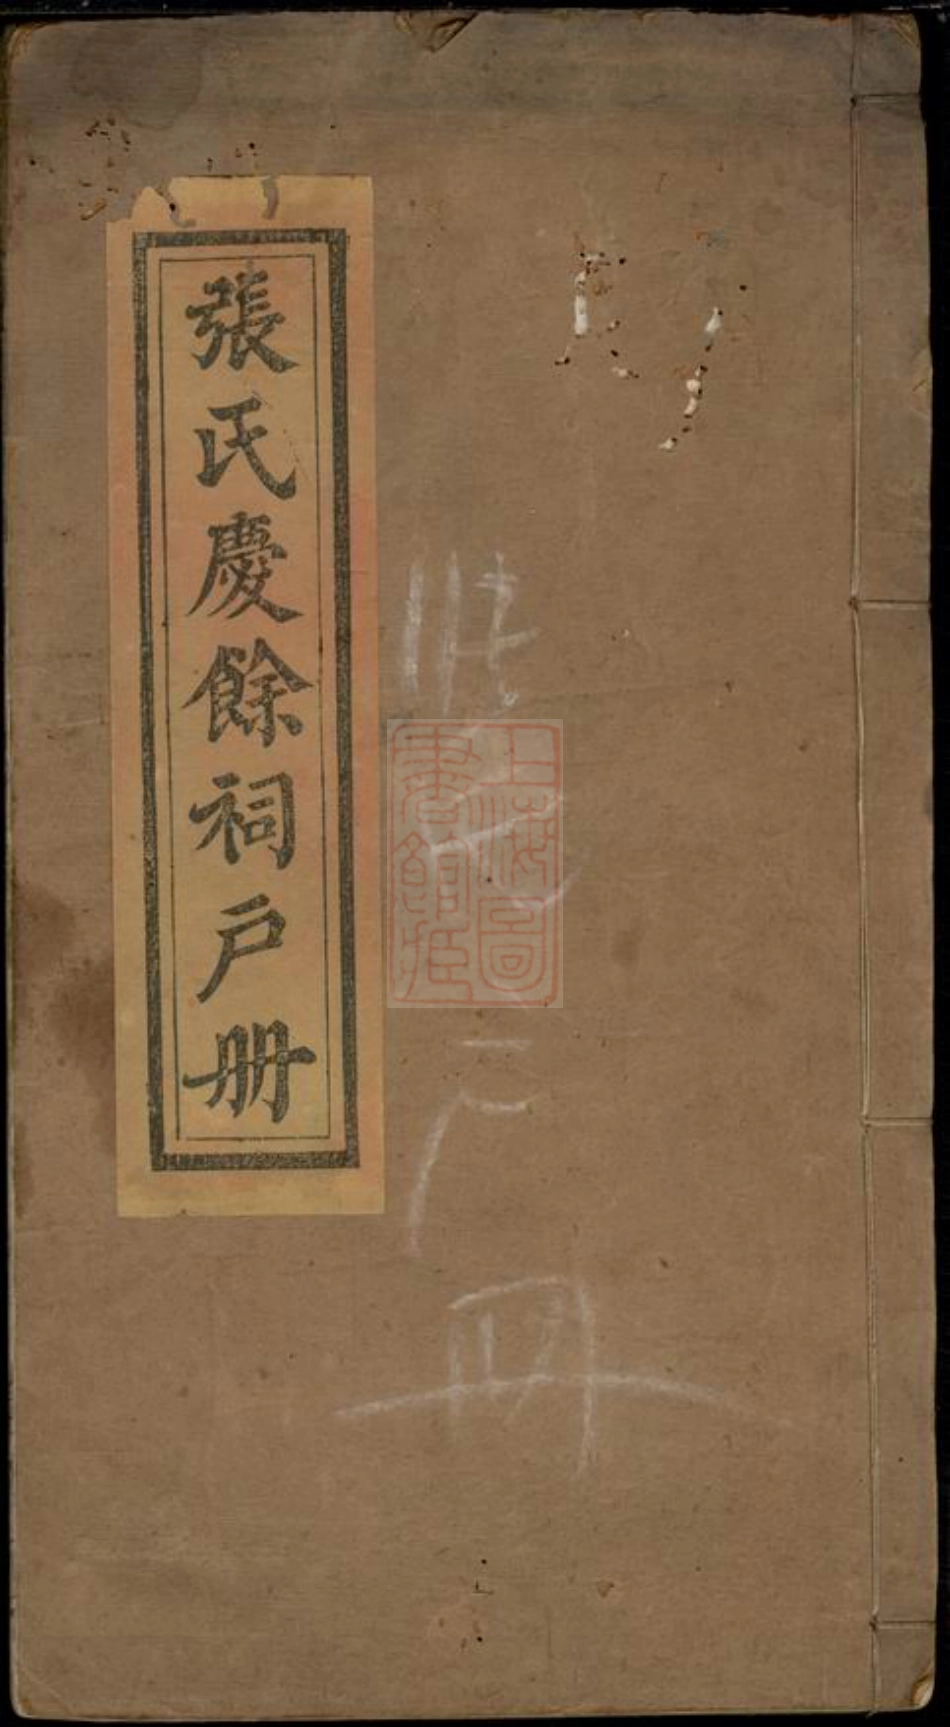 張氏慶餘祠户册
上海圖書館藏
户册